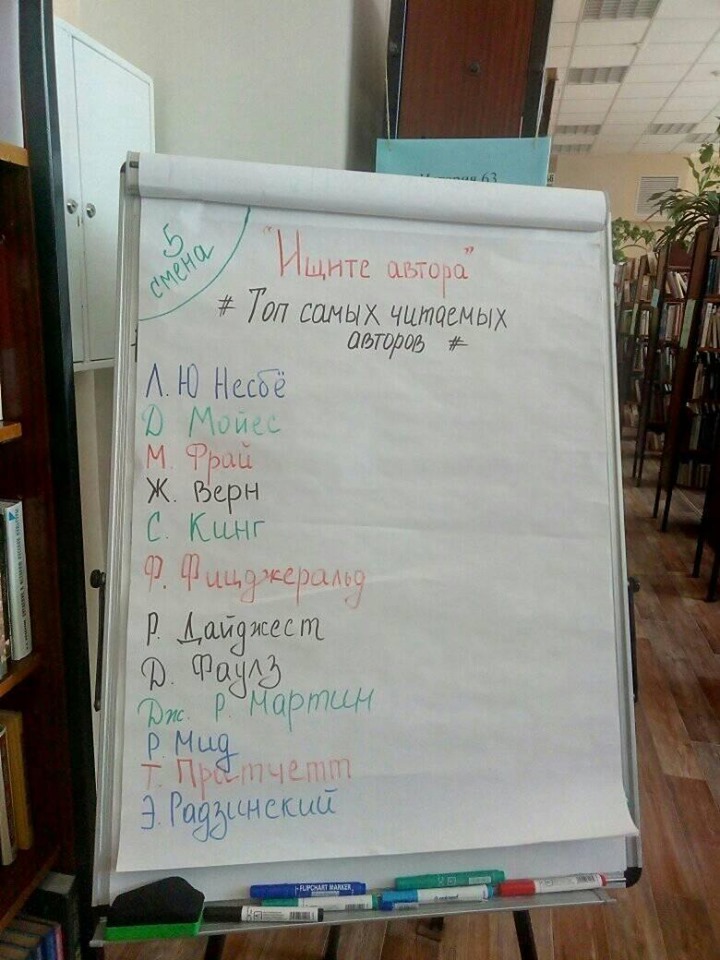 5
смена
"Ищите автора"
# Топ самых читаемых
авторов #
Л. Ю Несбё
Д Мойес
М. Фрай
Ж. Верн
С. Кинг
Ф. Фицджеральд
Р. Дайджест
Д. Фаулз
Дж. Р. Мартин
Р. Мид
Т. Пратчетт
Э. Радзинский
FLIPCHART MARKER